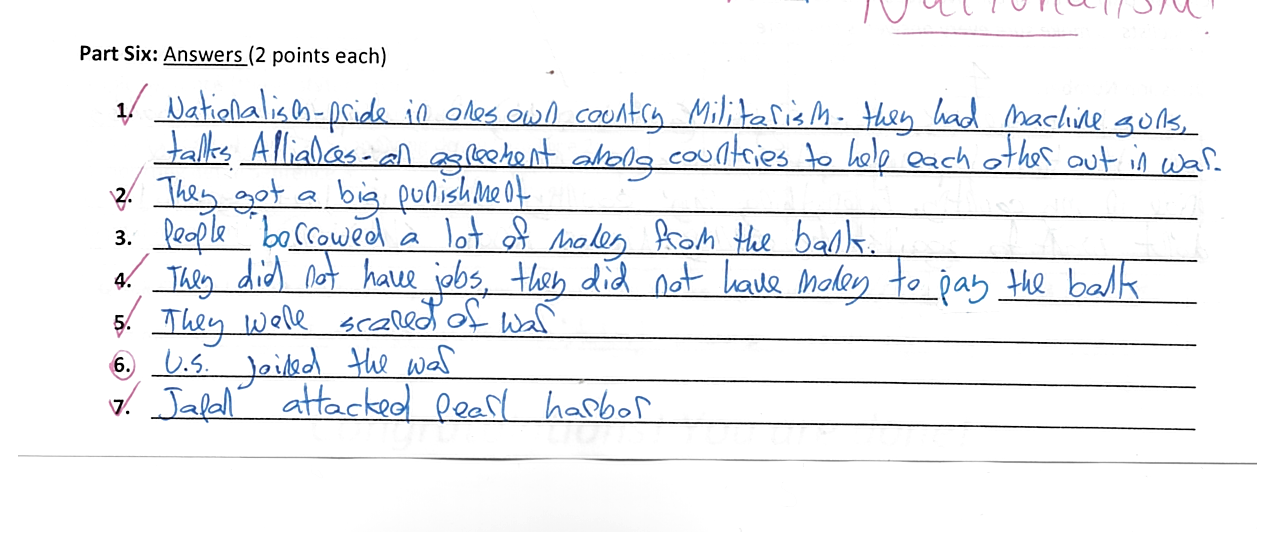 Nationalism
Part Six: Answers (2 points each)
1. Nationalism-pride in ones own country Militarism- they had machine guns,
tanks, Alliances-an agreement among countries to help each other out in war.
2. They got a big punishment
3. People borrowed a lot of money from the bank.
4. They did not have jobs, they did not have money to pay the bank
5. They were scared of war
6. U.S. joined the war
7. Japan attacked Pearl harbor